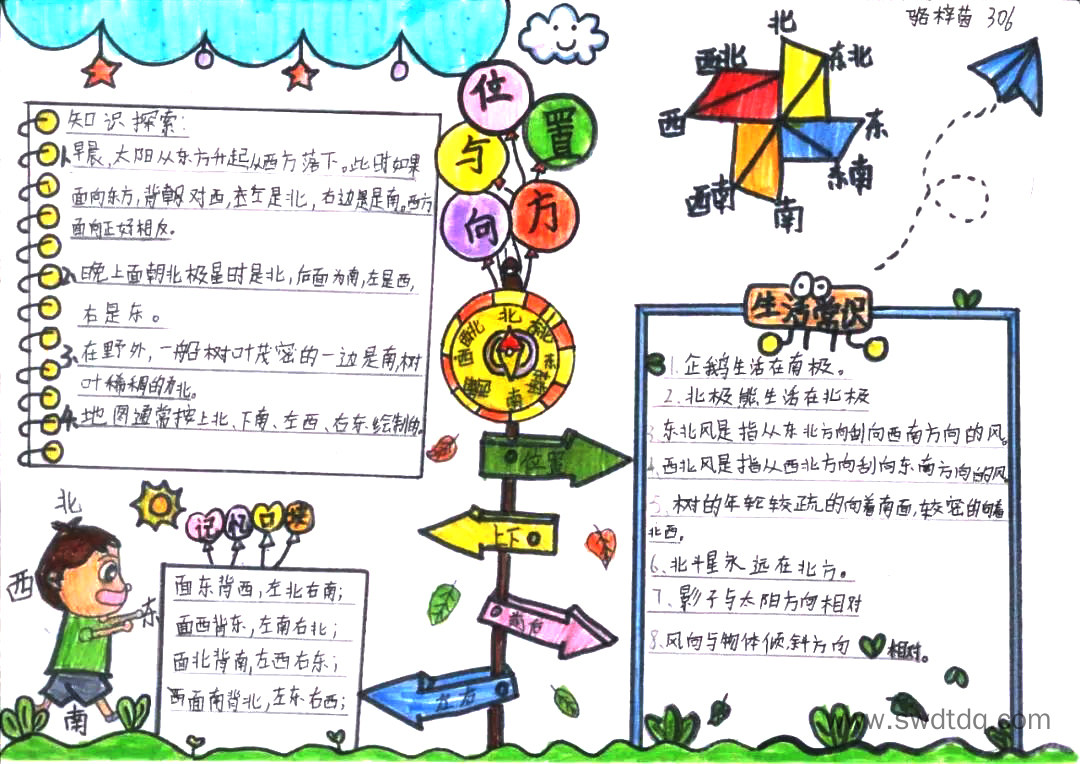 骆梓茵 306
位置
与
方向
北
西北
东北
西
东
西南
东南
南
知识探索:
1.早晨,太阳从东方升起从西方落下。此时如果
面向东方,背朝对西,左是北,右边是南。西方
面向正好相反。
2.晚上面朝北极星时是北,后面为南,左是西,
右是东。
3.在野外,一般树叶茂密的一边是南,树
叶稀稠的为北。
4.地图通常按上北、下南、左西、右东绘制的。
北
西北
东北
西
东
南
位置
上下
前后
左右
生活常识
1.企鹅生活在南极。
2.北极熊生活在北极
3.东北风是指从东北方向刮向西南方向的风。
4.西北风是指从西北方向刮向东南方向的风
5.树的年轮较疏的向着南面,较密的向着
北西。
6、北斗星永远在北方。
7、影子与太阳方向相对
8、风向与物体倾斜方向相对。
北
西
东
南
记忆口诀
面东背西,左北右南;
面西背东,左南右北;
面北背南,左西右东;
面南背北,左东右西;
www.swdtdq.com